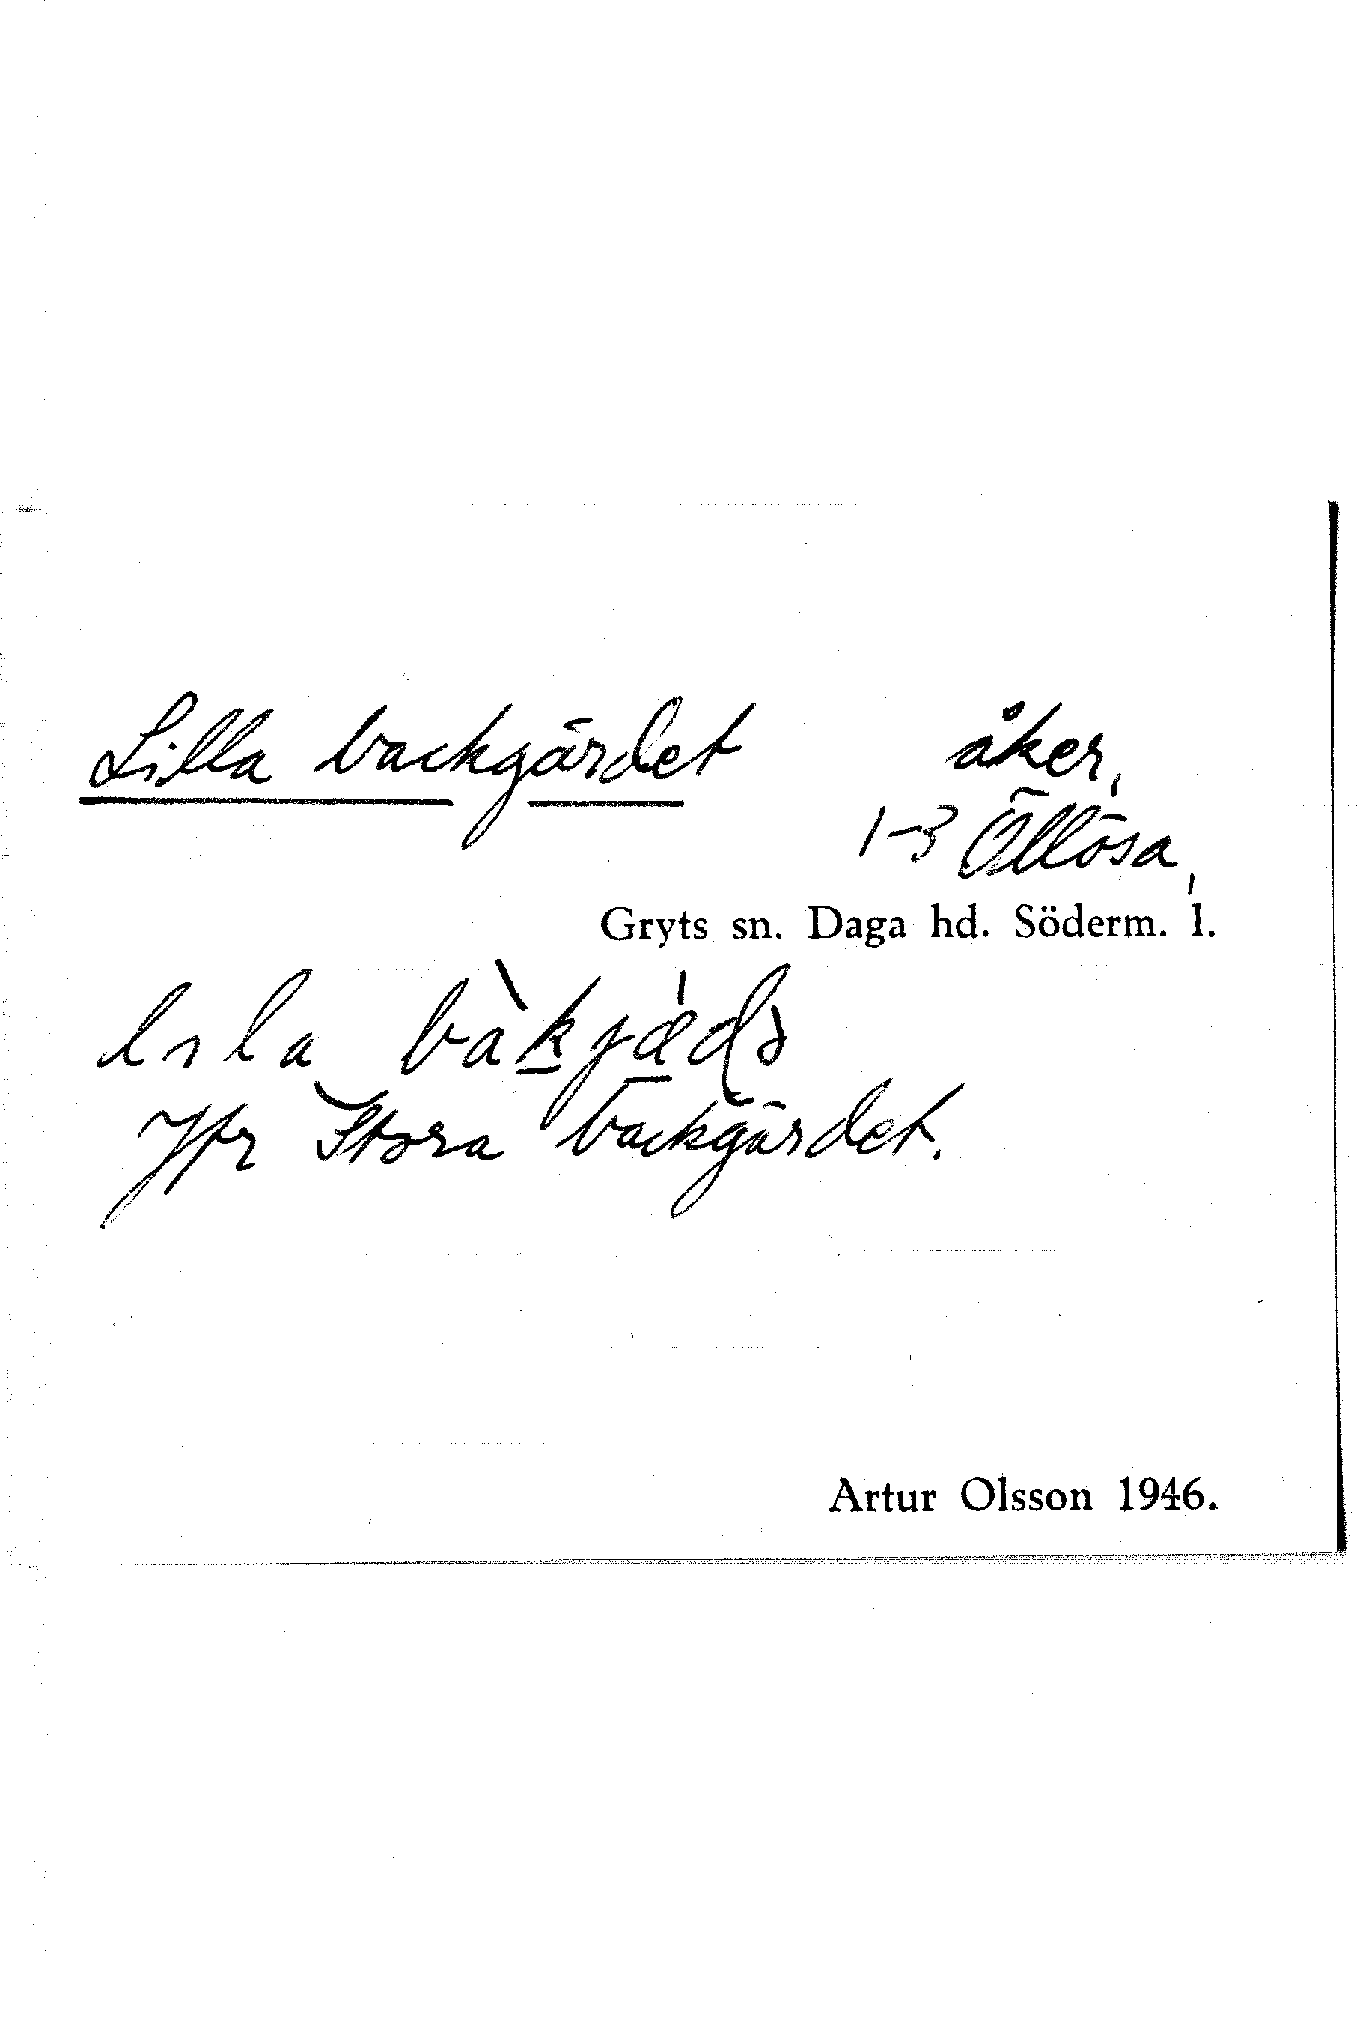 Lilla backgärdet åker,
1-3 Ällösa,
Gryts sn. Daga hd. Söderm. l.
lɩla bàk̲jǽ̲ḍə
Jfr Stora backgärdet.
Artur Olsson 1946.